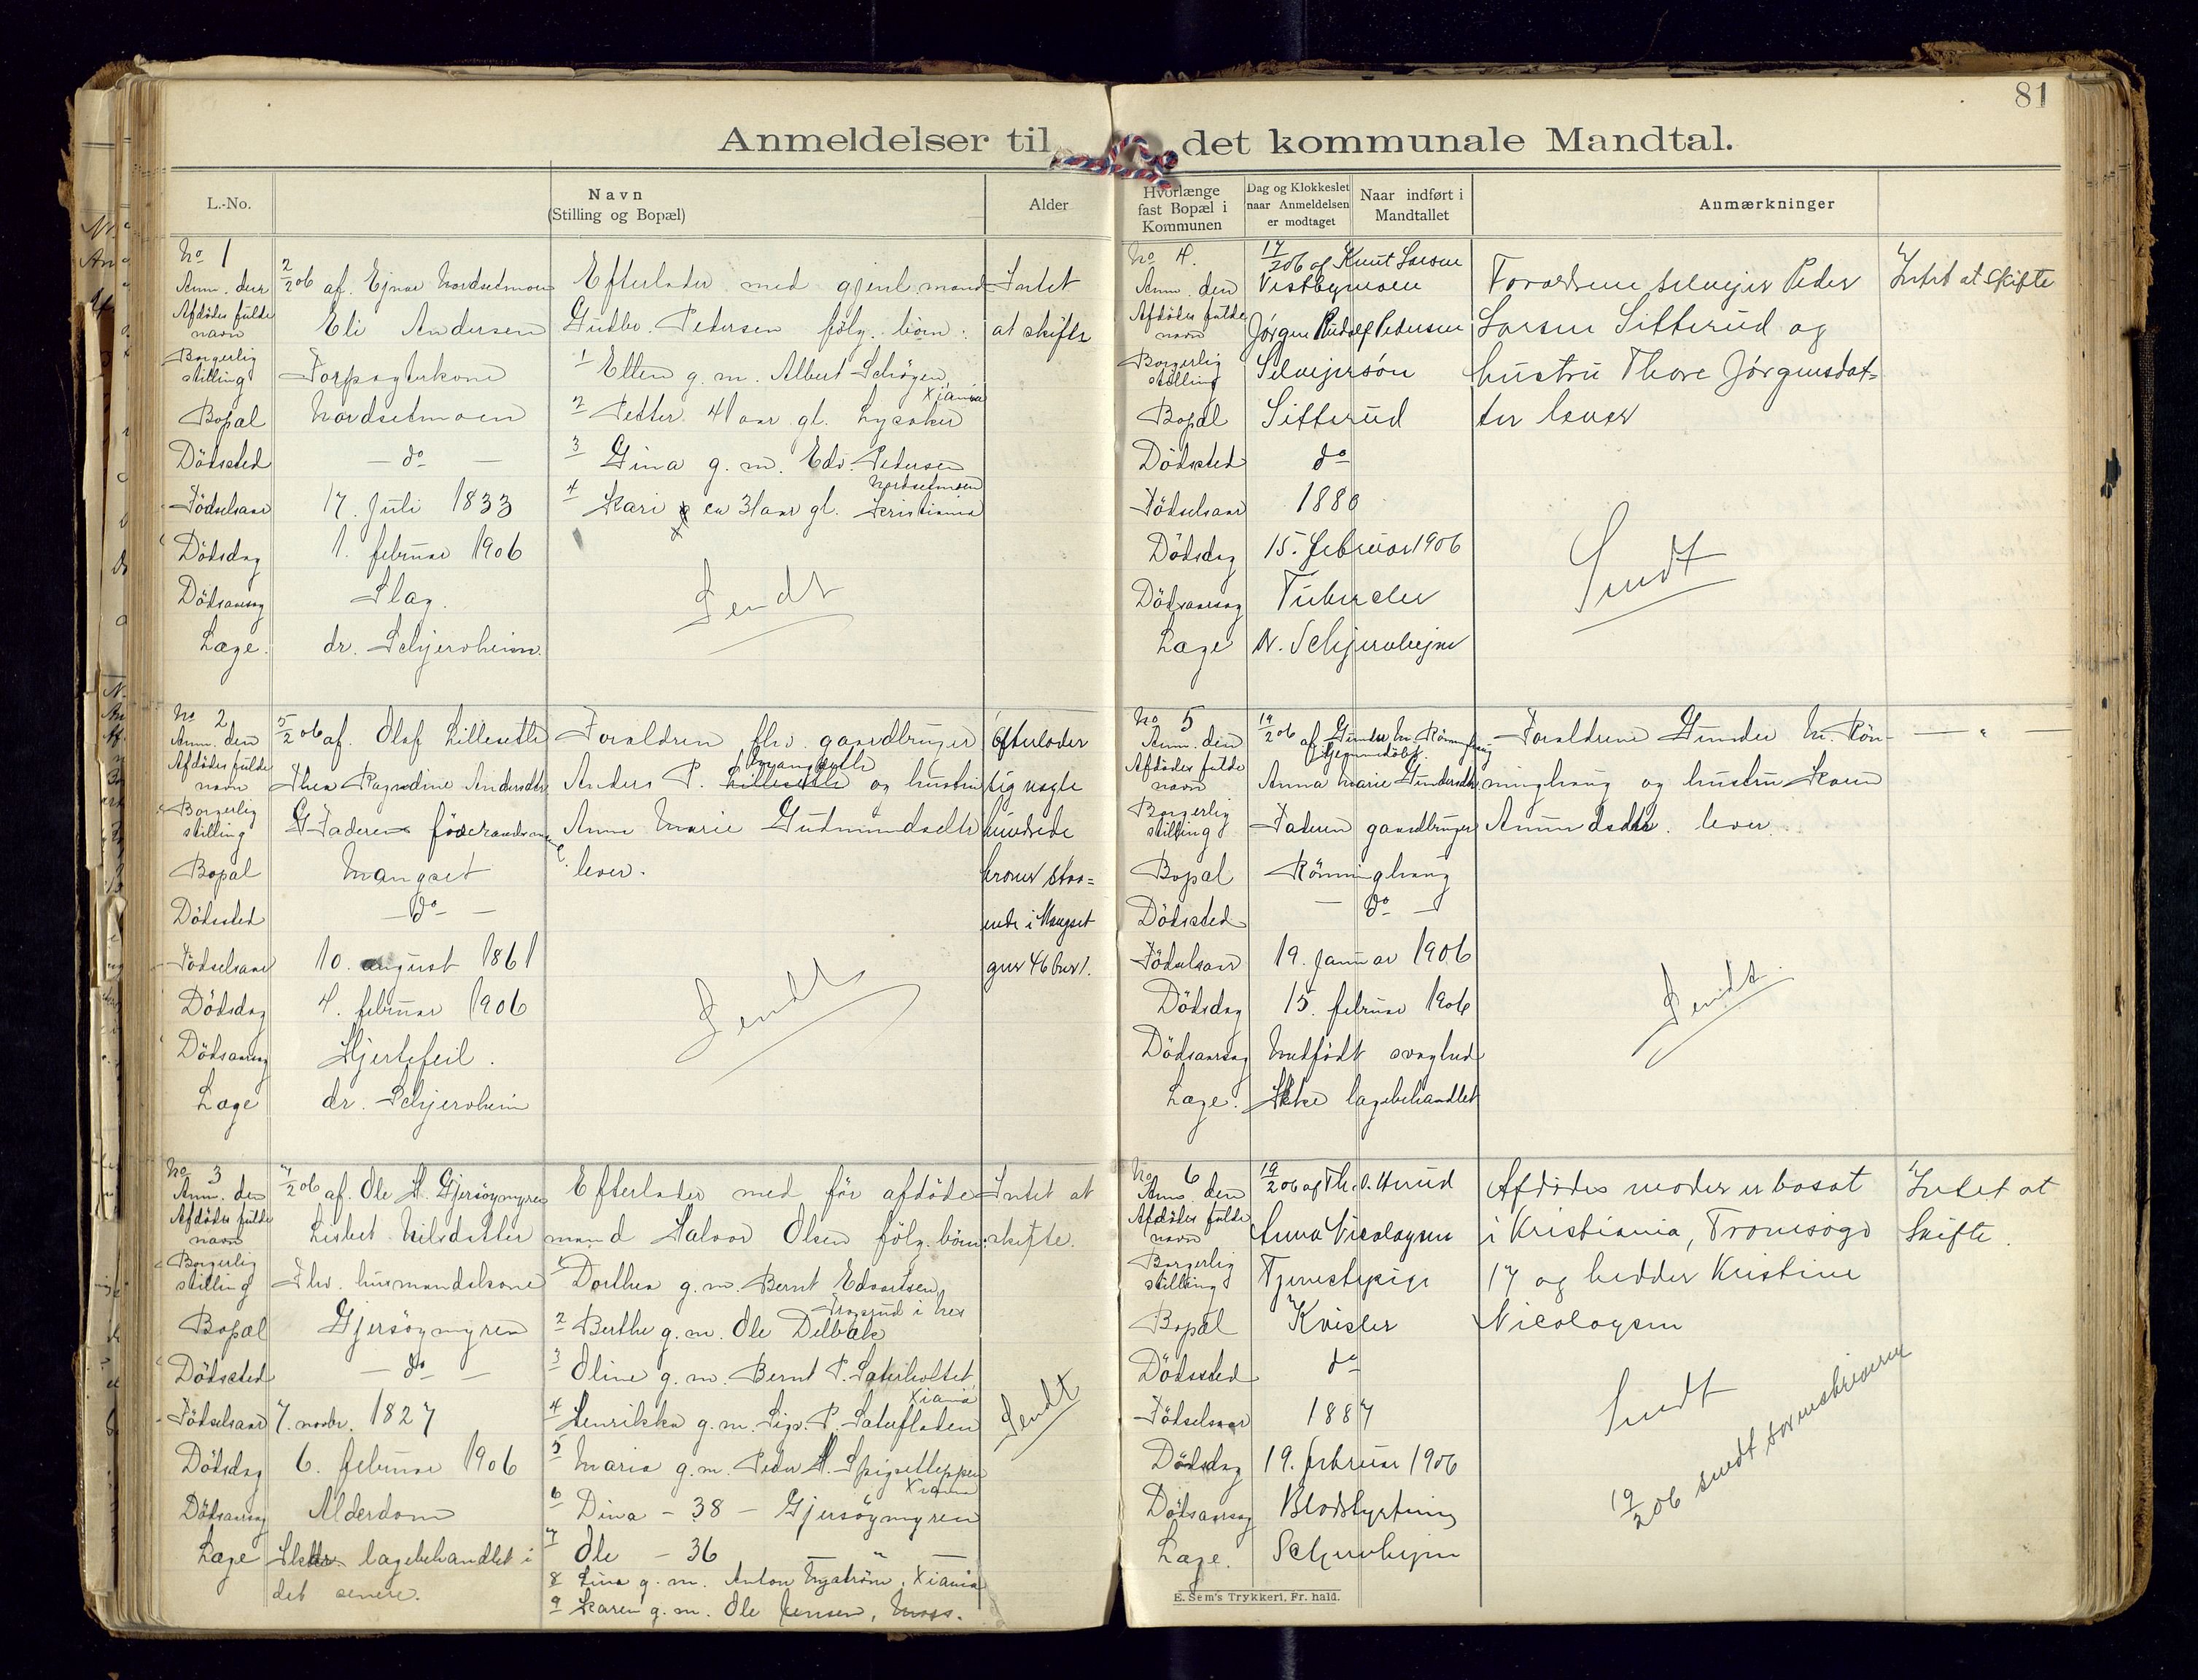 81
Anmeldelser til det kommunale Mandtal.
L.-No.
Navn
(Stilling og Bopæl)
Alder
Hvorlænge fast Bopæl i Kommunen
Dag og Klokkeslet naar Anmeldelsen er modtaget
Naar indført i Mandtallet
Anmærkninger
No 1
Anm. den 2/2 06 af. Ejnar Nordsetmoen
Afdödes fulde navn Eli Andersen
Borgerlig stilling Forpagterkone
Bopæl Nordsetmoen
Dödssted — do —
Födselsaar 17. Juli 1833
Dödsdag 1. februar 1906
Dödsaarsag Slag.
Læge. dr. Schjervheim.
Efterlader med gjenl. mand
Gudbr. Pedersen fölg. börn:
1 Ellen g. m. Albert Schøyen
Xiania
2 Petter 41 aar gl. Lysaker
3 Gina g. m. Edv. Pedersen
Nordsetmoen
4 Kari ca 31 aar gl. Kristiania
Sendt
Intet
at skifte
No 2
Anm. den 5/2 06 af. Olaf Lillesetli
Afdödes fulde navn Thea Andersdtr
Borgerlig stilling G Faderen föderaadsm
Bopæl Mangset
Dödssted — do —
Födselsaar 10. august 1861
Dödsdag 4. februar 1906
Dödsaarsag Hjertefeil.
Læge dr. Schjervheim
Forældren fhv. gaardbruger
Anders P. Lillesetli og hustru
Anne Marie Gudmundsdtr
lever.
Sendt
Efterlader
sig nogle
hundrede
kroner staa=
ende i Mangset
gnr 46 bnr 1.
No 3
Anm. den 7/2 06 af. Ole H. Gjersöymyren
Afdödes fulde navn Lisbet Nilsdatter
Borgerlig stilling Fhv. husmandskone
Bopæl Gjersöymyren
Dödssted — do —
Födselsaar 7. novbr. 1827
Dödsdag 6. februar 1906
Dödsaarsag Alderdom
Læge Ikke lægebehandlet i
det senere.
Efterlader med för afdöde
mand Halvor Olsen fölg. börn:
1 Dorthea g. m. Bernt Edvartsen
i Nes
2 Berthe g. m. Ole Delbæk
3 Oline g. m. Bernt P. Sæterholtet
Xiania
4 Henrikka g. m. Sigv. P. Sætufladen
5 Maria g. m. Peder H. Spigsetleppen
Xiania
6 Dina – 38 – Gjersöymyren
7 Ole – 36 — " —
8 Lina g. m. Anton Nyström, Xiania
9 Karen g. m. Ole Jensen, Moss.
Intet at
skifte.
Sendt
No 4.
Anm. den 17/2 06 af Knut Larsen
Vestbymoen
Afdödes fulde navn Jörgen Rudolf Pedersen
Borgerlig stilling Selveiersön
Bopæl Sitterud
Dödssted do
Födselsaar 1880
Dödsdag 15. februar 1906
Dödsaarsag Tuberkler
Læge N. Schjervhejm
Forældrene selveier Peder
Larsen Sitterud og
hustru Thore Jörgensdat=
ter lever
Sendt
Intet at skifte
No 5
Anm. den 19/2 06 af Gunder M. Rönninghaug
Afdödes fulde navn Anna Marie Gundersdtr
Borgerlig stilling Faderen gaardbruger
Bopæl Rönninghaug
Dödssted — do —
Födselsaar 19. januar 1906
Dödsdag 15. februar 1906
Dödsaarsag Medfödt svaghed
Læge. Ikke lægebehandlet
Forældrene Gunder M. Rön-
ninghaug og hustru Karen
Amundsdtr. lever.
Sendt
— " —
No 6
Anm. den 19/2 06 af Th. O. Herud
Afdödes fulde navn Anna Nicolaysen
Borgerlig stilling Tjenestepige
Bopæl Kvisler
Dödssted do
Födselsaar 1887
Dödsdag 19. februar 1906
Dödsaarsag Blodstyrtning
Læge. Schjervhejm
Afdödes moder er bosat
i Kristiania, Tromsögd
17 og hedder Kristine
Nicolaysen
Sendt
19/2 06 sendt sorenskriveren
Intet at
skifte.
E. Sem's Trykkeri, Fr. hald.